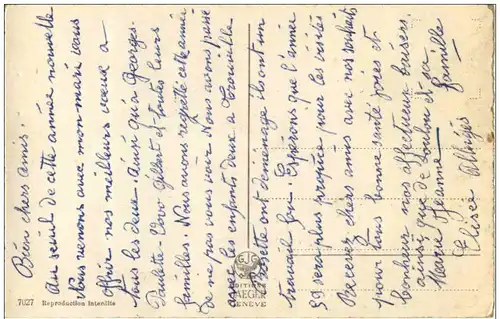 Bien chers amis -
Au seuil de cette année nouvelle
Nous venons avec mon mari vous
offrir nos meilleurs vœux à
tous les deux. Ainsi qu'à Georges.
Paulette - Gilbert et toutes leurs
familles. Nous avons regretté cette année
de ne pas vous voir. Nous avons passé
avec les enfants deux à Trouville
ont déménagé ils ont un
travail fou. Espérons que l'année
59 sera plus propice pour les visites
Recevez chers amis avec nos souhaits
pour tous bonne santé joies et
bonheur nos affectueux baisers.
ainsi que de Loulou et sa
Marie Jeanne - famille
Elisée
7027 Reproduction interdite
EDITIONS
JAEGER
GENÈVE